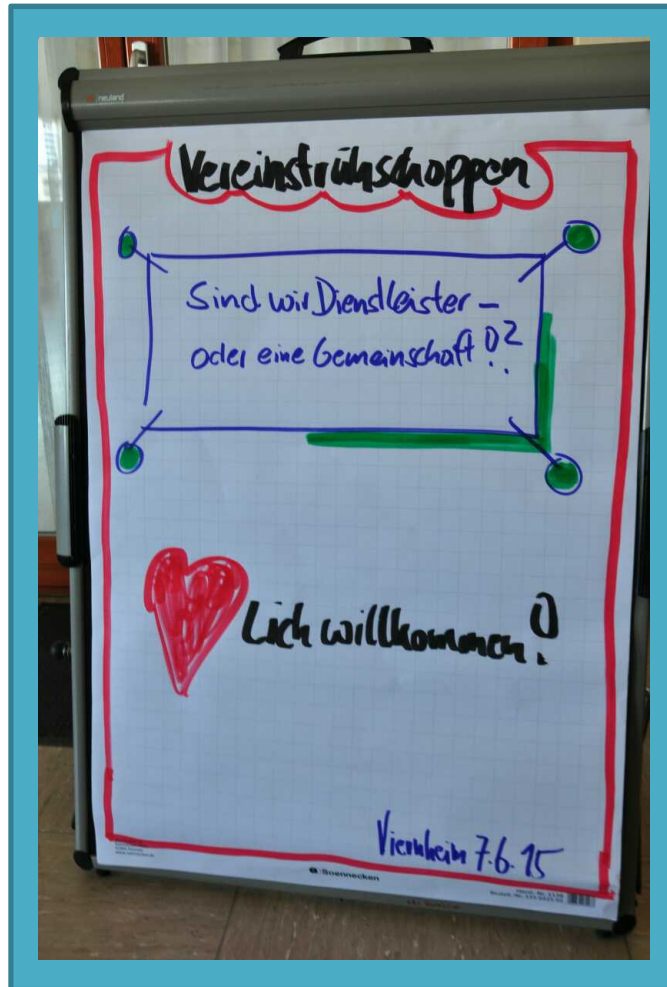 neuland
Vereinsfrühschoppen
Sind wir Dienstleister –
oder eine Gemeinschaft!?
lich willkommen!
Viernheim 7.6.15
Soennecken